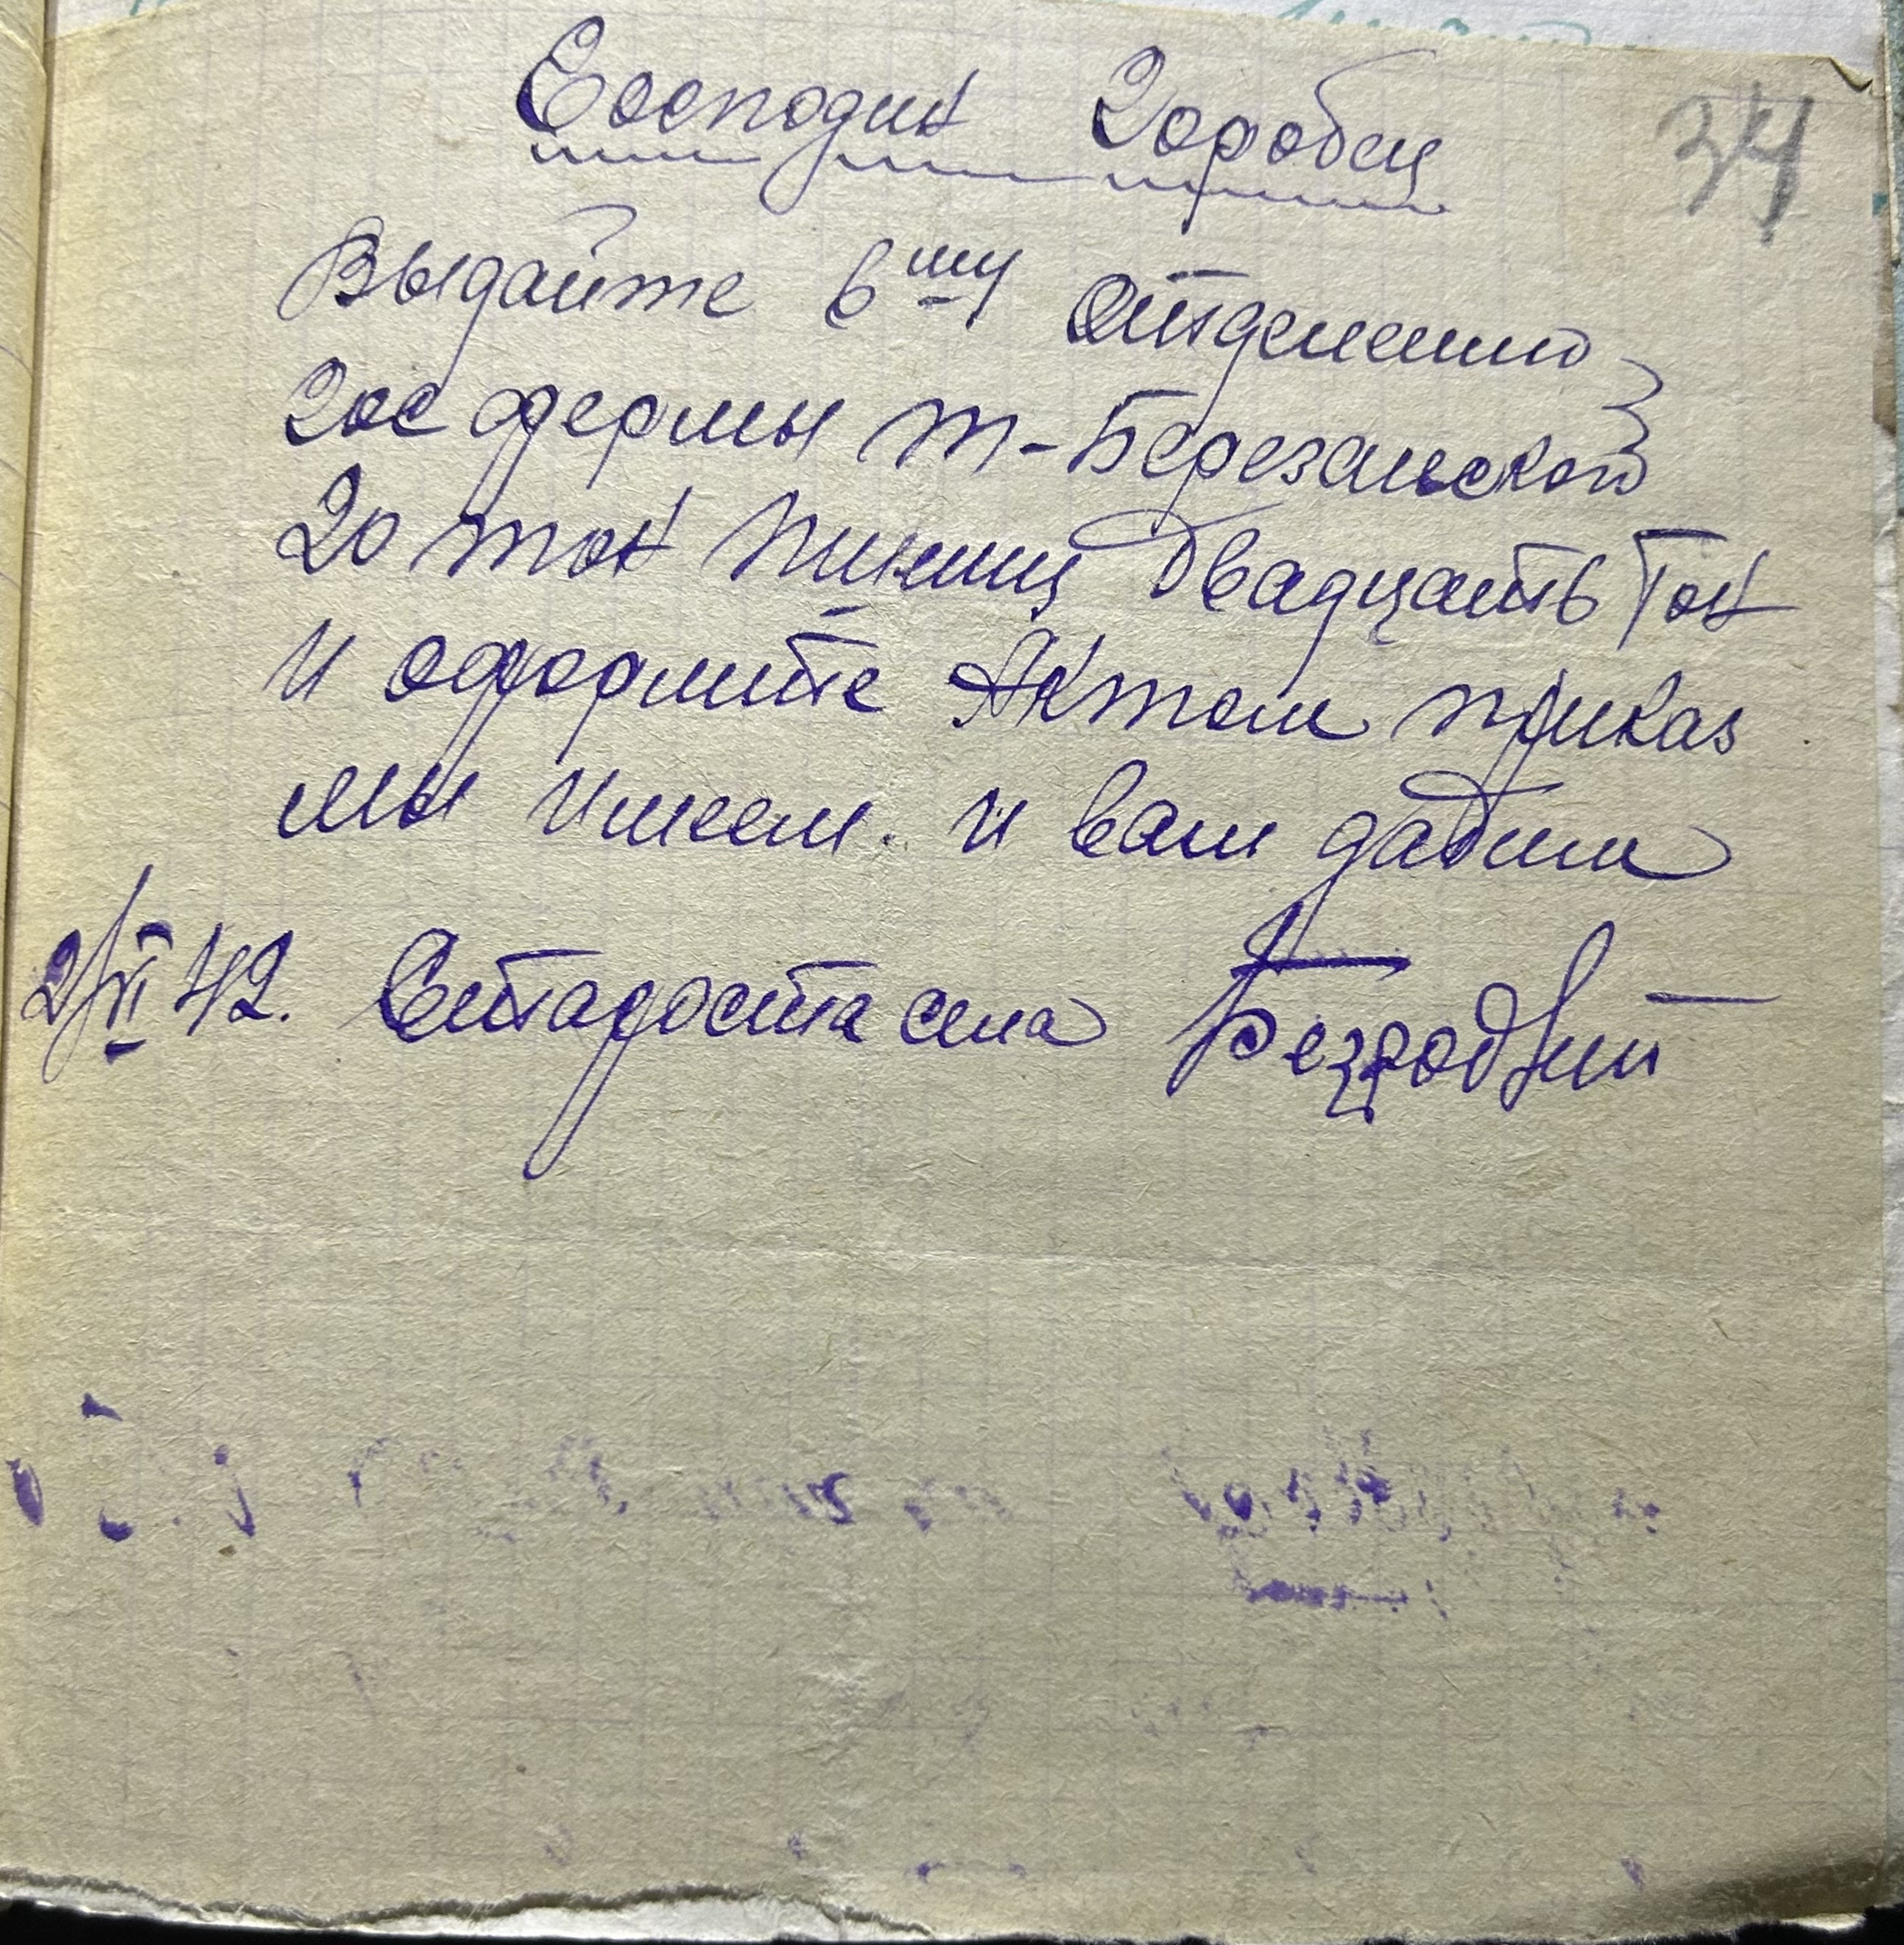 Господин Горобец
34
Выдайте 6му Отделению
гос фермы т-Березанской
20 тон пшениц Двадцать Тон
и оформите Актом приказ
мы имеем. и вам дадим
2/XI 42. Староста села Безродний